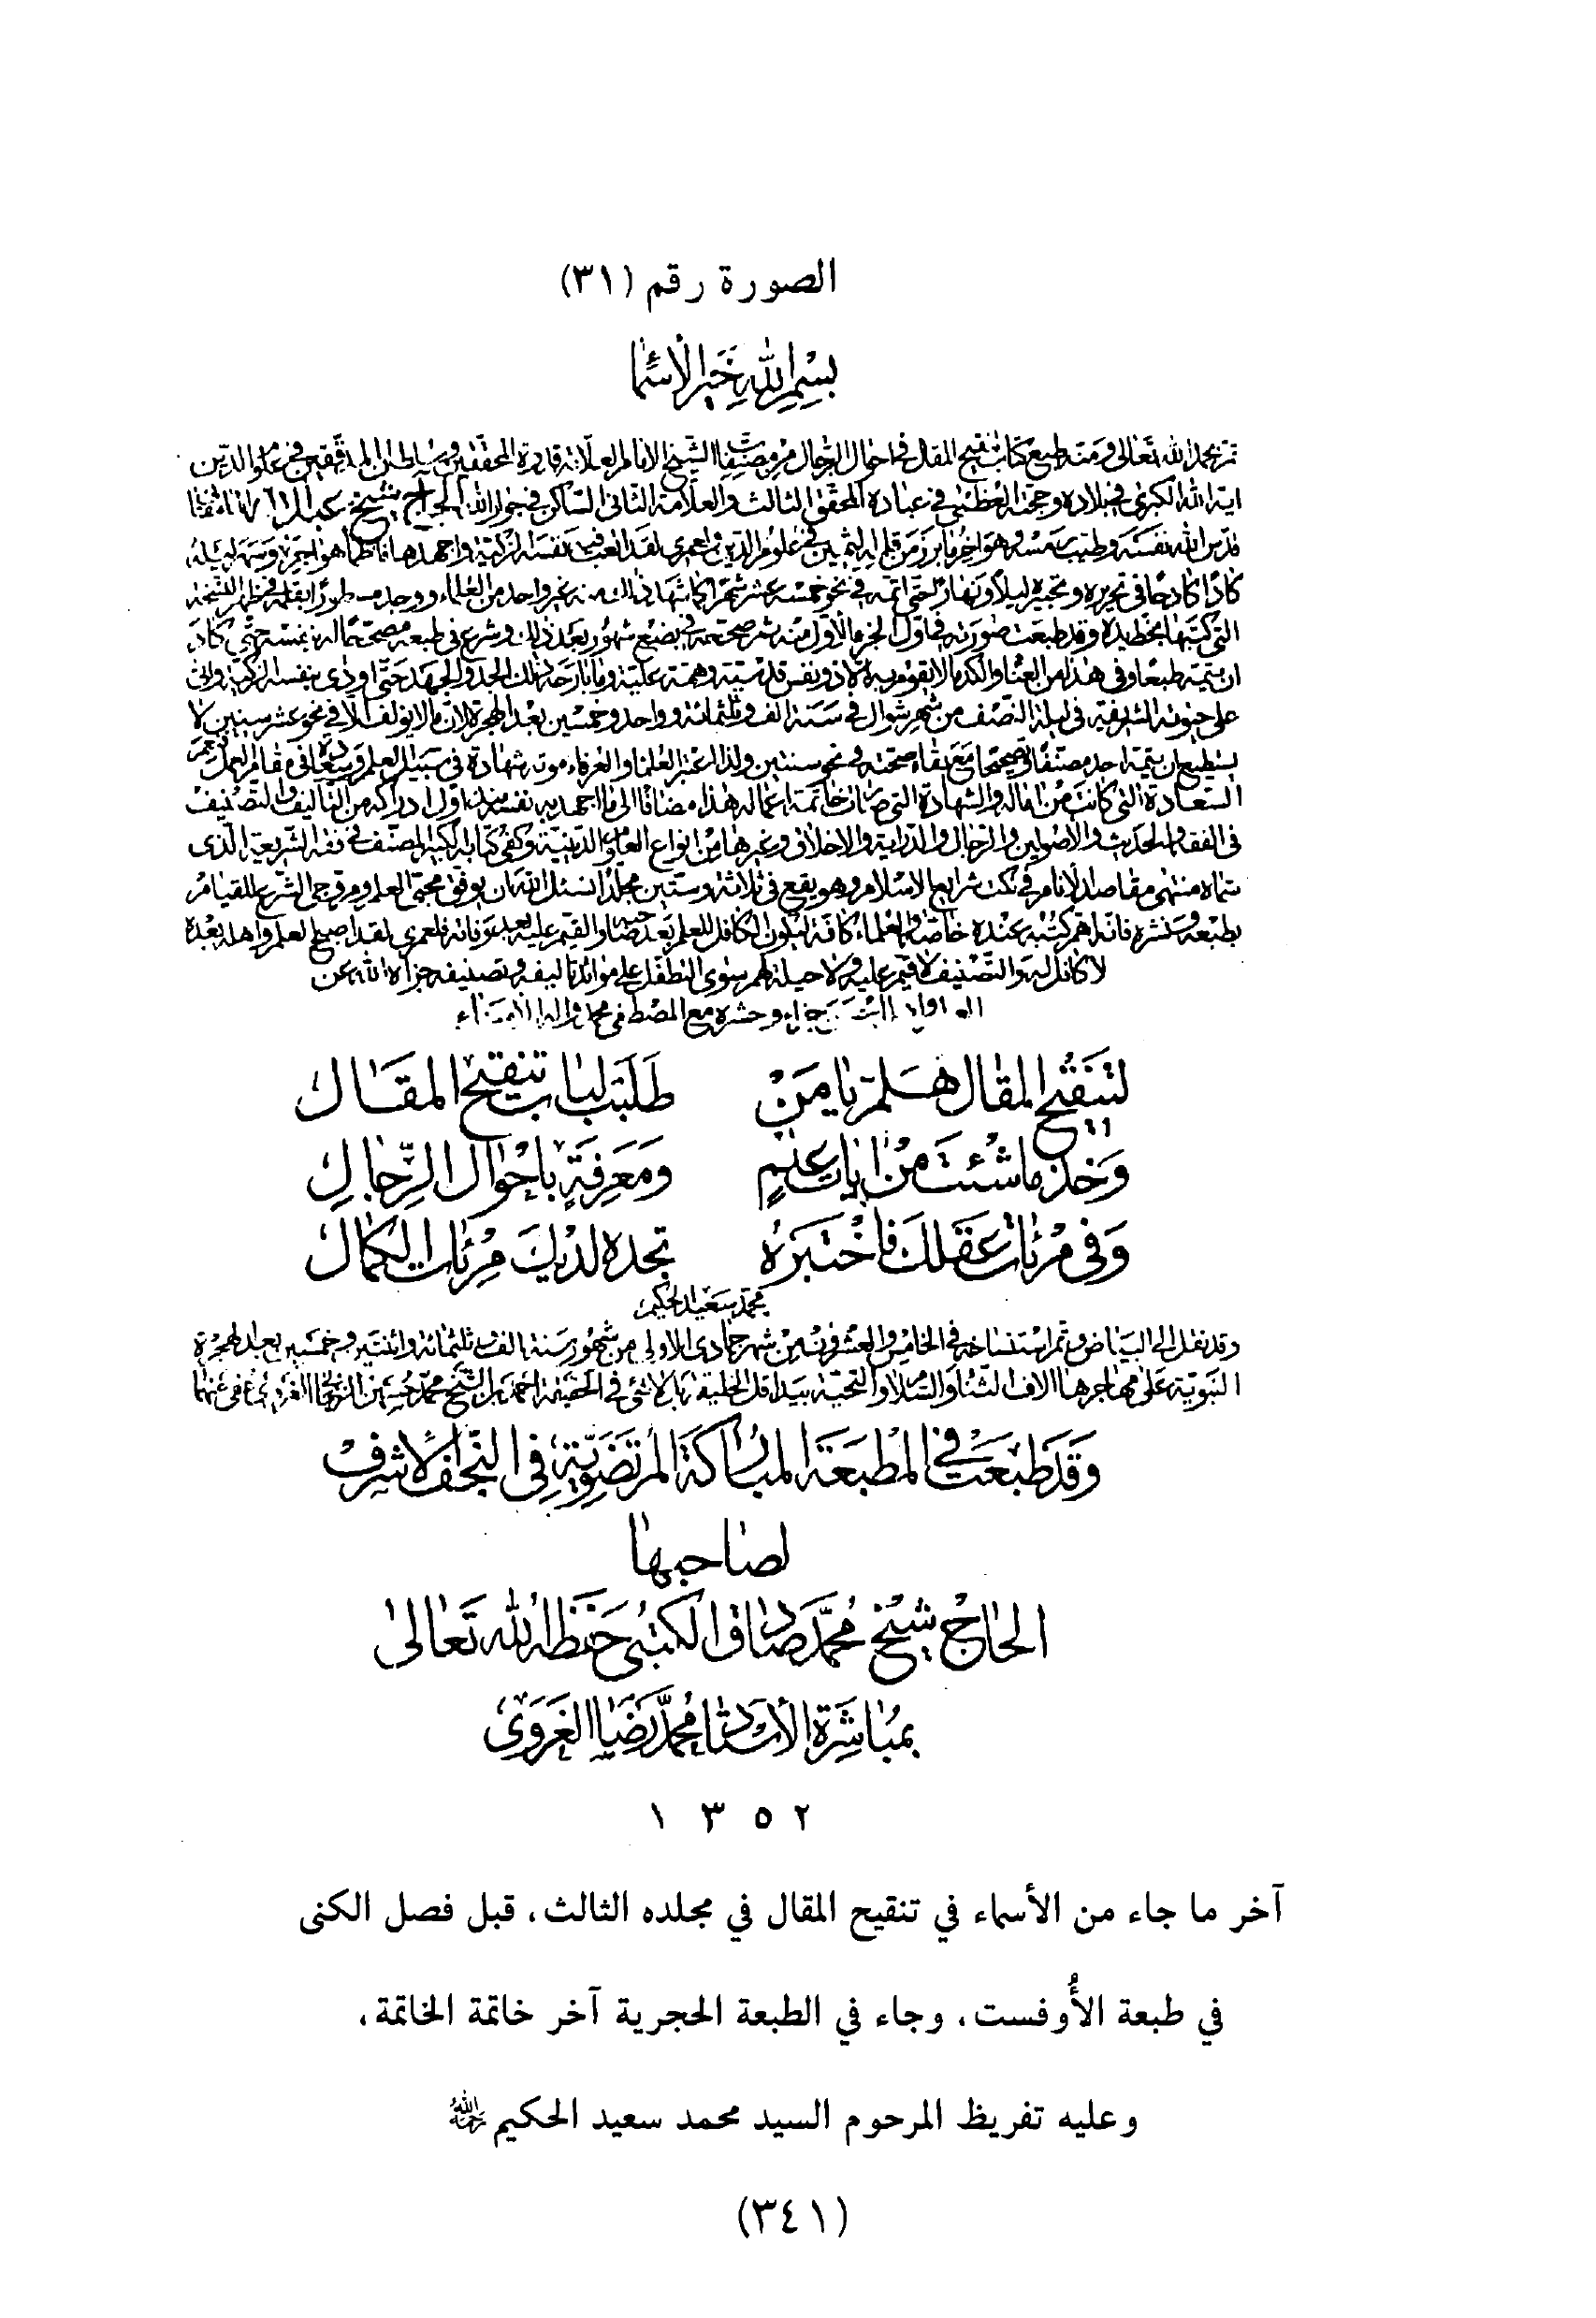 الصورة رقم (٣١)
بسم الله خير الأسما
تم بحمد الله تعالى ومنه طبع كتاب تنقيح المقال في احوال الرجال من مصنفات الشيخ الامام العلامة قدوة المحققين وسلطان المدققين في علوم الدين
اية الله الكبرى في بلاده وحجته العظمى في عباده المحقق الثالث والعلامة الثاني الساكن في جوار الله الحاج شيخ عبد الله المامقاني
قدس الله نفسه وطيب رمسه وهو اخر ما برز من قلمه الثمين في علوم الدين ولعمري لقد اتعب فيه نفسه الزكية واجهدها
كادا كادحا في تحريره وتحبيره ليلا ونهارا حتى اتمه في نحو خمسة عشر شهرا كما شهد بذلك غير واحد من العلماء ووجد مسطورا بقلمه في ظهر النسخة
التي كتبها بخط يده وقد طبعت صورته في اول الجزء الأول منه ثم صححه في بضع شهور بعد ذلك وشرع في طبعه مصححا له بنفسه حتى كاد
ان يتمه طبعا وفي هذا من العناء والكد ما لا يقوم به الا ذو نفس قدسية وهمة علية وما بارحه ذلك الجد والجهد حتى اودى بنفسه الزكية واتى
على حيوته الشريفة في ليلة النصف من شهر شوال في سنة الف وثلثمائة وواحد وخمسين بعد الهجرة لان ما لا يؤلف الا في نحو عشر سنين لا
يستطيع ان يتمه احد مصنفا مع بقاء صحته في نحو سنتين ولذا اعتبر العلماء والعرفاء موته شهادة في سبيل العلم
السعادة التي كانت من اماله والشهادة التي صارت خاتمة اعماله هذا مضافا الى ما اجهد به نفسه منذ اول ادراكه من التأليف والتصنيف
في الفقه والحديث والأصولين والرجال والدراية والاخلاق وغيرها من انواع العلوم الدينية وكفى كتابه الكبير المصنف في فقه الشريعة الذي
سماه منتهى مقاصد الأنام في نكت شرايع الاسلام وهو يقع في ثلاثة وستين مجلدا نسئل الله ان يوفق محبي العلم ومروجي الشرع للقيام
بطبعه ونشره فانه اهم كتبه عنده خاصة والعلماء كافة ليكون الكافل للعلم بعد صاحبه والقيم عليه بعد وفاته فلعمري لقد اصبح العلم واهله بعده
لا كافل له والتصنيف لا قيم عليه ولا حيلة لهم سوى التطفل على موائد تاليفه وتصنيفه جزاه الله عن
خير جزاء وحشره مع المصطفى محمد واله الامناء
لتنقيح المقال هلم يا من طلبت لباب تنقيح المقال
وخذ ما شئت من ايات علم ومعرفة بأحوال الرجال
وفي مرئات عقلك فاختبره تجده لديك مرئات الكمال
محمد سعيد الحكيم
وقد نقل الى البياض وتم استنساخه في الخامس والعشرون من شهر جمادى الاولى من شهور سنة الف وثلثمائة واثنتين وخمسين بعد الهجرة
النبوية على مهاجرها الاف الثناء والسلام والتحية بيد اقل الخليقة بل لا شئ في الحقيقة احمد بن الشيخ محمد حسين الزنجاني الغروي عفى عنهما
وقد طبعت في المطبعة المباركة المرتضوية في النجف الأشرف
لصاحبها
الحاج شيخ محمد صادق الكتبي حفظه الله تعالى
بمباشرة الأستاد محمد رضا الغروي
١٣٥٢
آخر ما جاء من الأسماء في تنقيح المقال في مجلده الثالث، قبل فصل الكنى
في طبعة الأُوفست، وجاء في الطبعة الحجرية آخر خاتمة الخاتمة،
وعليه تفريظ المرحوم السيد محمد سعيد الحكيم رحمه الله
(٣٤١)